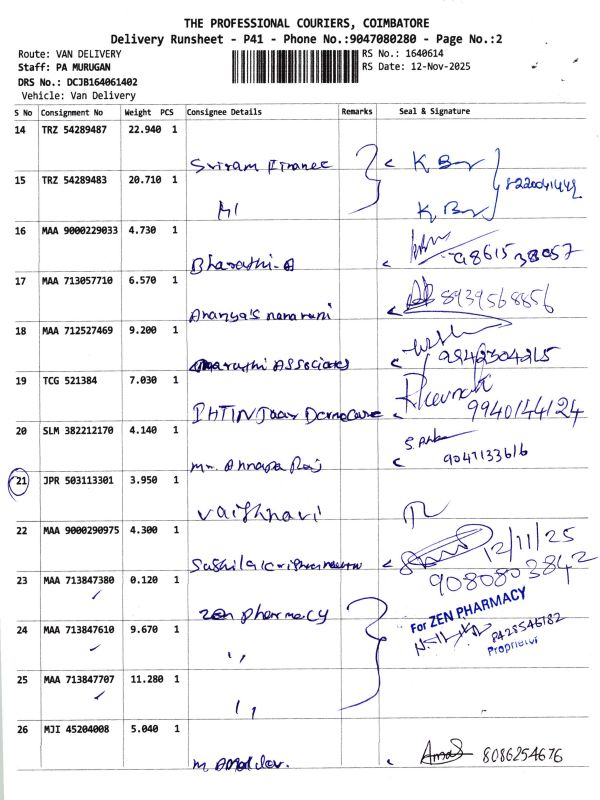 THE PROFESSIONAL COURIERS, COIMBATORE
Delivery Runsheet - P41 - Phone No.:9047080280 - Page No.:2
Route: VAN DELIVERY
RS No.: 1640614
Staff: PA MURUGAN
RS Date: 12-Nov-2025
DRS No.: DCJB164061402
Vehicle: Van Delivery
S No Consignment No Weight PCS Consignee Details Remarks Seal & Signature
14 TRZ 54289487 22.940 1
Sriram Finance
15 TRZ 54289483 20.710 1
16 MAA 9000229033 4.730 1
Bharathi-A
17 MAA 713057710 6.570 1
8939568856
18 MAA 712527469 9.200 1
Associates
19 TCG 521384 7.030 1
9940144124
20 SLM 382212170 4.140 1
9047133616
21 JPR 503113301 3.950 1
Vaishnavi
22 MAA 9000290975 4.300 1
12/11/25
9080803842
23 MAA 713847380 0.120 1
Zen pharmacy
For ZEN PHARMACY
Proprietor
24 MAA 713847610 9.670 1
,,
25 MAA 713847707 11.280 1
,,
26 MJI 45204008 5.040 1
8086254676